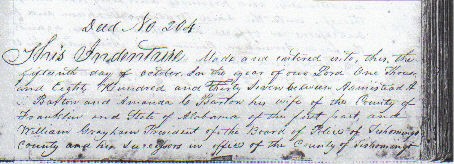 Deed No. 204
This Indenture Made and entired into, this, the
fifteenth day of october In the year of our Lord One Thous
and Eight Hundred and thirty Seven between Armistead A
Barton and Amanda C Barton his wife of the County of
Franklin and State of Alabama of the first part, and
William Grayham President of the Board of Police of Tishomingo
County and his Successors in office of the County of Tishomingo